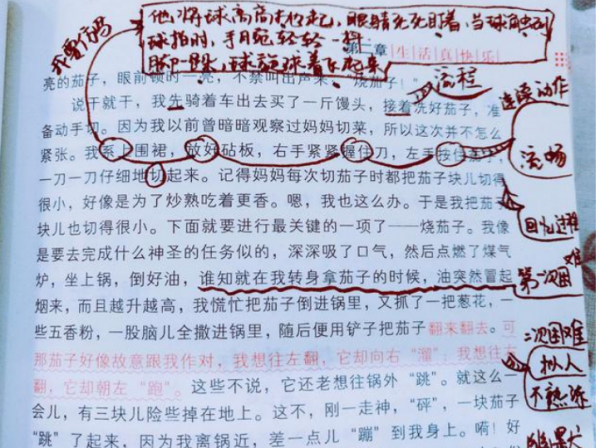 他将球高高抛起，眼睛死死盯着，当球触到
球拍时，手腕轻轻一抖
第二章 生活真快乐
亮的茄子，眼前顿时一亮，不禁叫出声来："烧茄子！"
流程
说干就干，我先骑着车出去买了一斤馒头，接着洗好茄子，准
连续动作
备动手切。因为我以前曾暗暗观察过妈妈切菜，所以这次并不怎么
紧张。我系上围裙，放好砧板，右手紧紧握住刀，左手按住茄子，
流畅
一刀一刀仔细地切起来。记得妈妈每次切茄子时都把茄子块儿切得
很小，好像是为了炒熟吃着更香。嗯，我也这么办。于是我把茄子
块儿也切得很小。下面就要进行最关键的一项了——烧茄子。我像
是要去完成什么神圣的任务似的，深深吸了口气，然后点燃了煤气
炉，坐上锅，倒好油，谁知就在我转身拿茄子的时候，油突然冒起
第一次困难
烟来，而且越升越高，我慌忙把茄子倒进锅里，又抓了一把葱花，一
些五香粉，一股脑儿全撒进锅里，随后便用铲子把茄子翻来翻去。可
二次困难
那茄子好像故意跟我作对，我想往左翻，它却向右"溜"；我想往右
拟人
翻，它却朝左"跑"。这些不说，它还老想往锅外"跳"。就这么一
不熟练
会儿，有三块儿险些掉在地上。这不，刚一走神，"砰"，一块茄子
"跳"了起来，因为我离锅近，差一点儿"蹦"到我身上。嗬！好